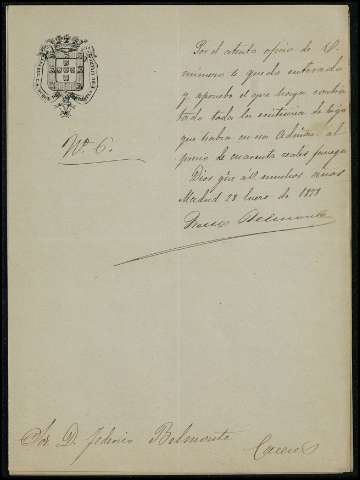 Nº 6.
Por el atento oficio de V.
número 4 quedo enterado
y apruebo el que haya contra
tado toda la existencia de trigo
que había en esa Admón. al
precio de cuarenta reales fanega
Dios gûe a V. muchos años
Madrid 28 Enero de 1878
Belmonte
Sor. D. Federico Belmonte
Caceres